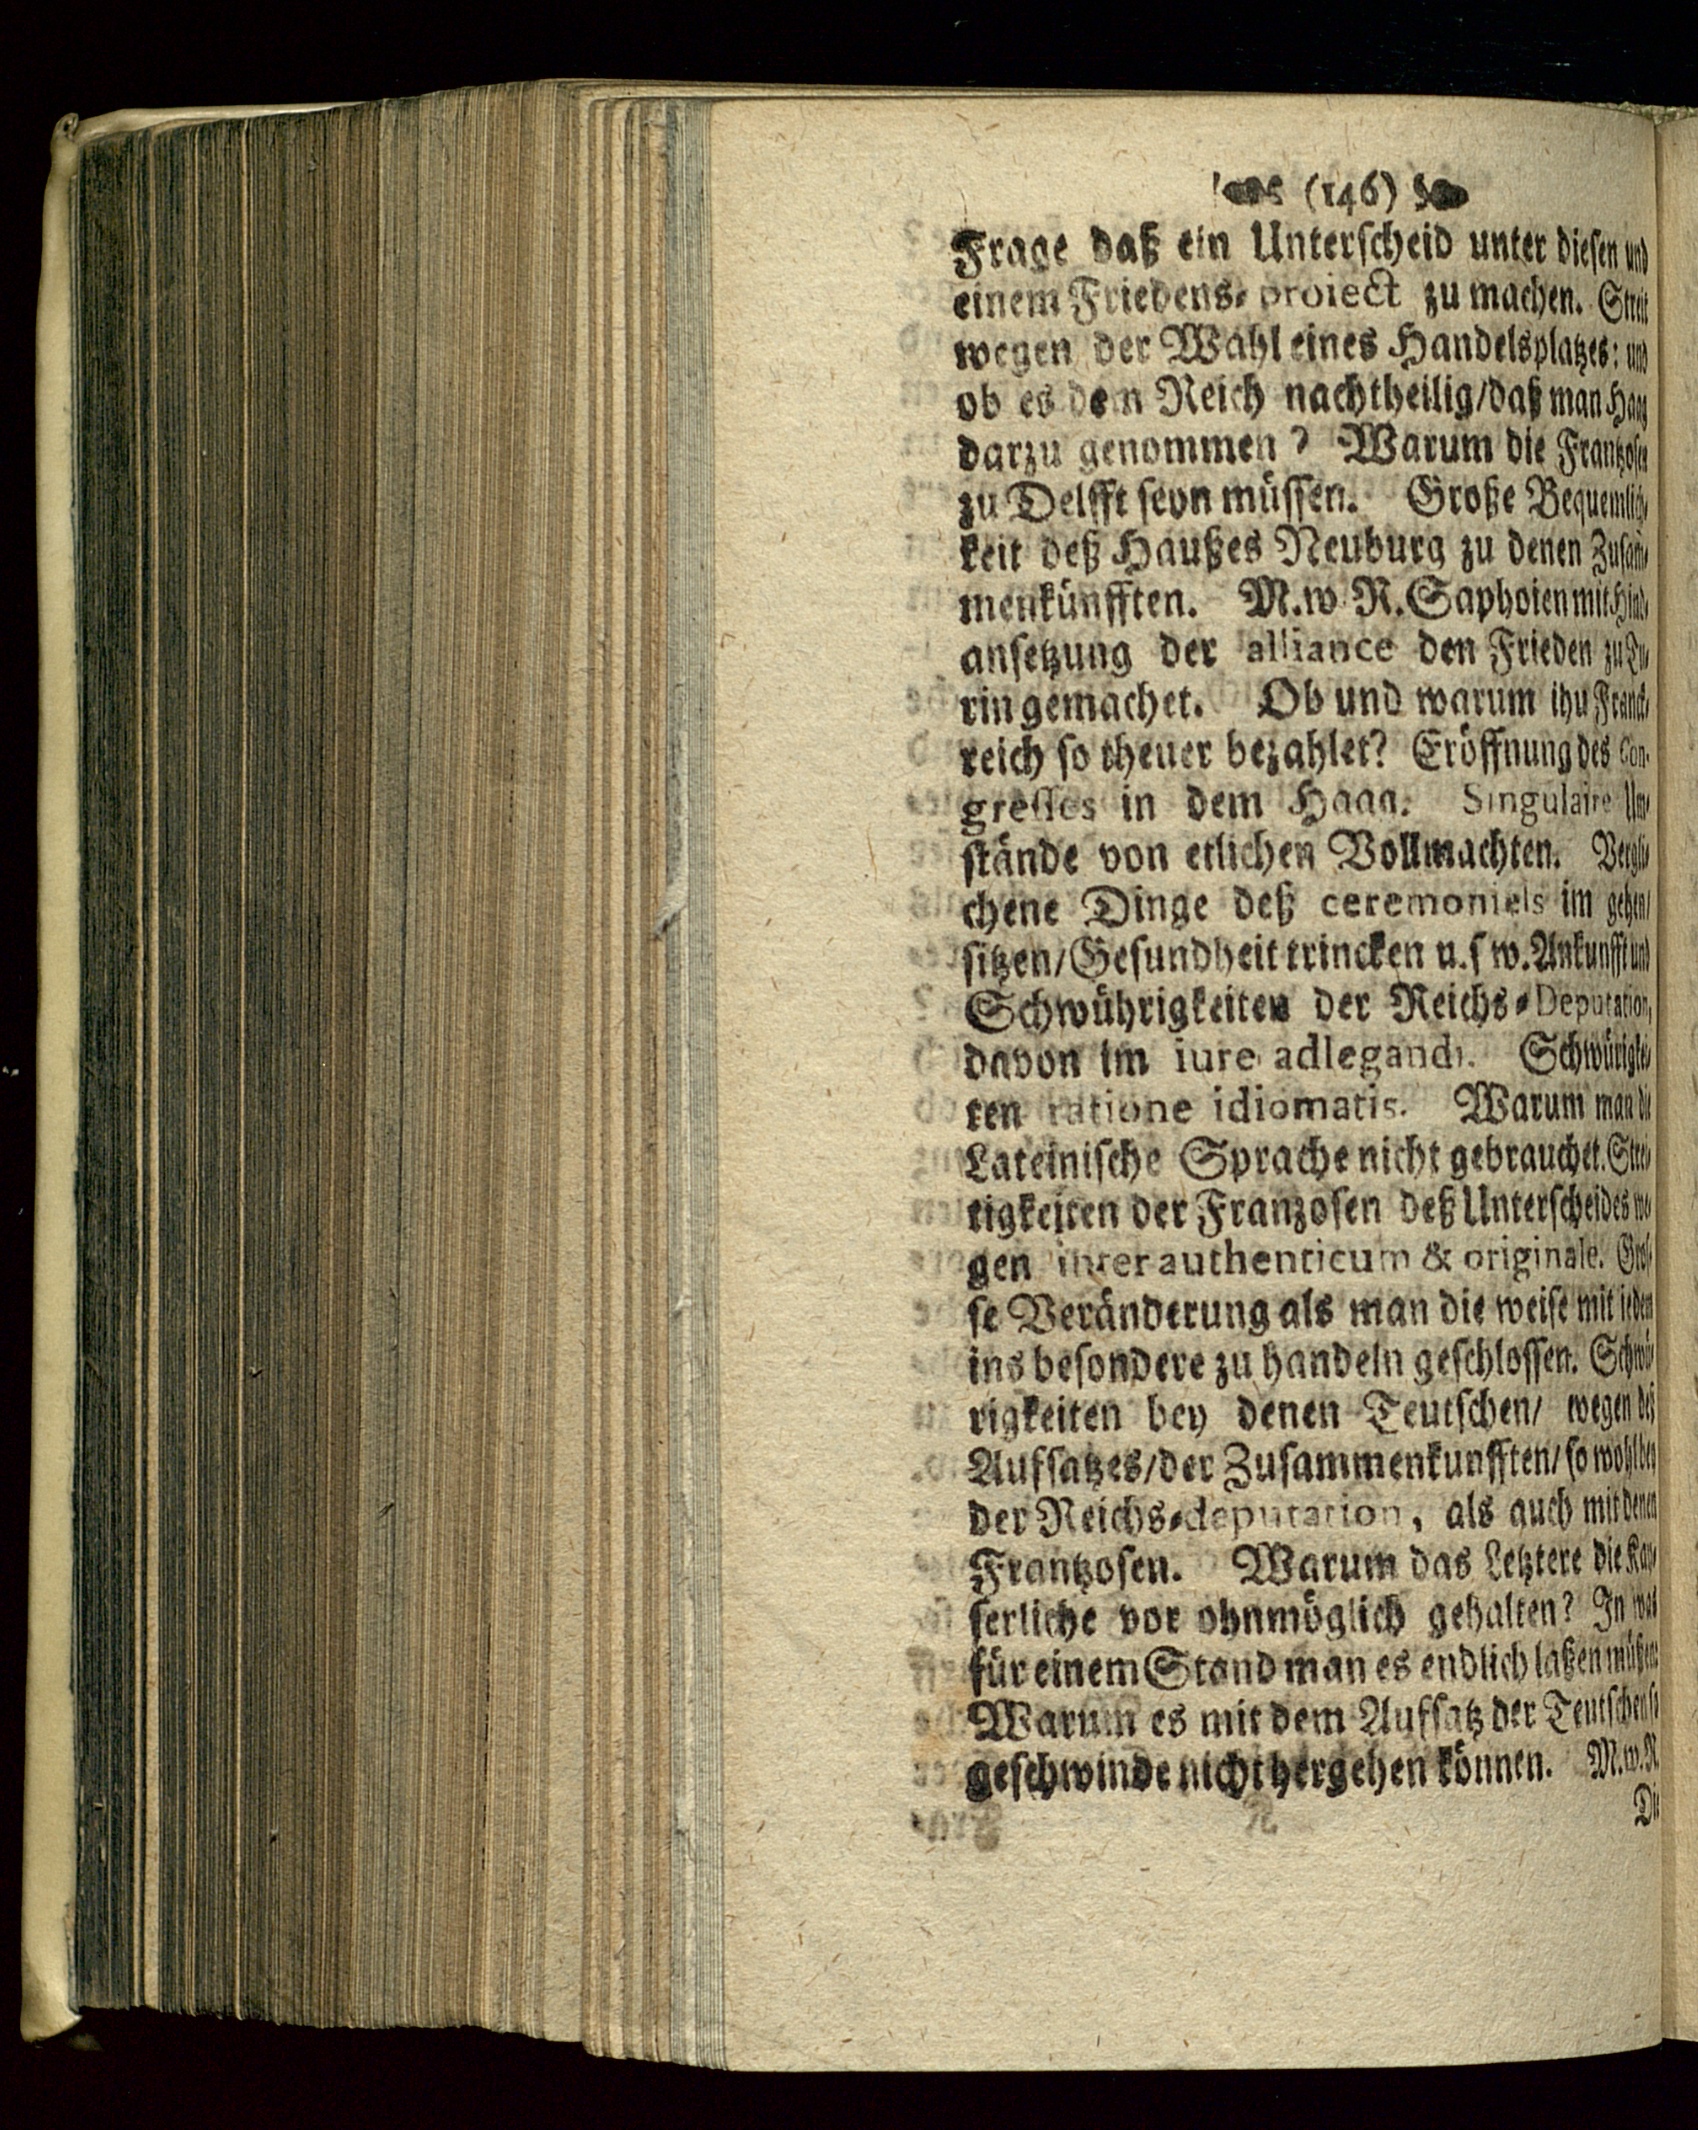 (146)
Frage daß ein Unterscheid unter diesen und
einem Friedens-proiect zu machen. Streit
wegen der Wahl eines Handelsplatzes: und
ob es dem Reich nachtheilig/daß man Haag
darzu genommen? Warum die Frantzosen
zu Delfft seyn müssen. Große Bequemlich-
keit deß Haußes Neuburg zu denen Zusam-
menkünfften. M.w R. Saphoien mit Hind-
ansetzung der alliance den Frieden zu Tu-
rin gemachet. Ob und warum ihu Franck-
reich so theuer bezahlet? Eröffnung des Con-
gresses in dem Haag. Singulaire Um-
stände von etlichen Vollmachten. Vergli-
chene Dinge deß ceremoniels im gehen/
sitzen/Gesundheit trincken u.s w. Ankunfft und
Schwührigkeiten der Reichs-Deputation,
davon im iure adlegandi. Schwürigkei-
ten ratione idiomatis. Warum man die
Lateinische Sprache nicht gebrauchet. Strei-
tigkeiten der Franzosen deß Unterscheides we-
gen inter authenticum & originale. Gros-
se Veränderung als man die weise mit ieden
ins besondere zu handeln geschlossen. Schwü-
rigkeiten bey denen Teutschen/ wegen deß
Aufsatzes/der Zusammenkunfften/ so wohl bey
der Reichs-deputation, als auch mit denen
Frantzosen. Warum das Letztere die Kay-
serliche vor ohnmöglich gehalten? In was
für einem Stand man es endlich laßen müßen:
Warum es mit dem Aufsatz der Teutschen so
geschwinde nicht hergehen können. M.w.R
Die